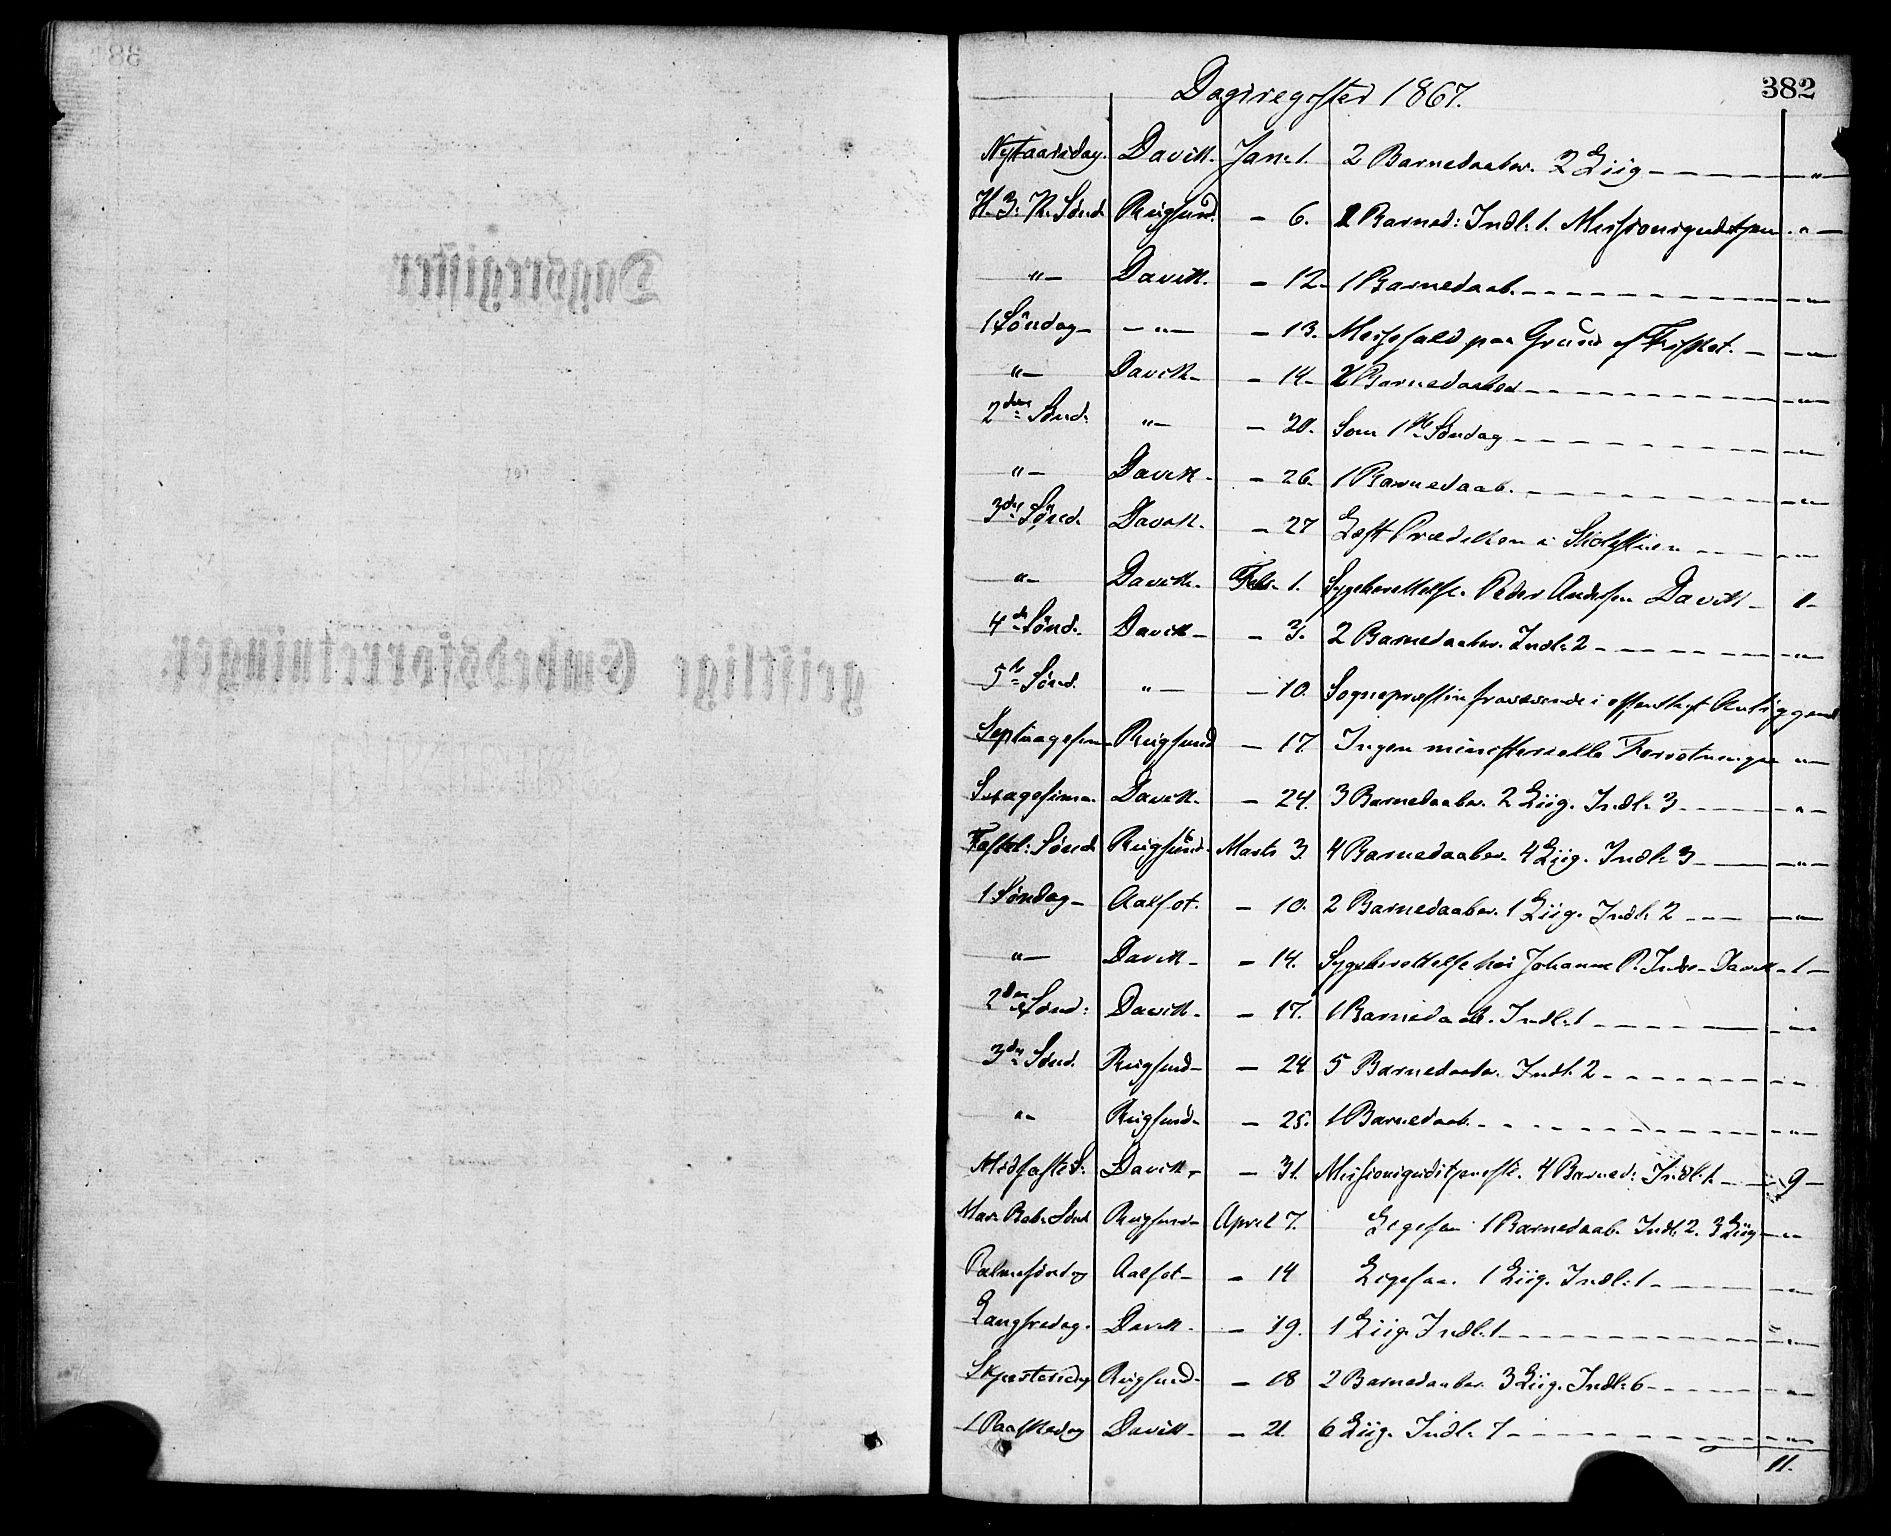 382
Dagsregister 1867.
Nytaarsdag. Davik. Jan. 1. 2 Barnedaaber. 2 Liig - - - "
H. 3. K. Sønd. Rugsund. - 6. 2 Barned: Indl: 1. Missionsgudstjen. "
" Davik. - 12. 1 Barnedaab. - - - "
1 Søndag - " - - 13. Messefald paa Grund af Fisket. - "
" Davik - - 14 - 2 Barnedaaber - - - "
2den Sønd: " - 20. Som 1ste Søndag - - - "
" Davik - - 26. 1 Barnedaab. - - - "
3die Sønd. Davik. - 27 Læst Prædiken i - - - "
" Davik - Febr. 1. Sygeberettelse. Peder Andersen Davik - 1 -
4de Sønd. Davik - - 3. 2 Barnedaaber. Indl: 2 - - - "
5te Sønd. " - 10. Sognepræsten fraværende i offentligt Anliggende
Septuagesima Rugsund - 17 Ingen ministerielle Forretninger "
Sexagesima. Davik. - 24. 3 Barnedaaber. 2 Liig. Indl: 3 - - - "
Fastel: Sønd. Rugsund. Marts 3. 4 Barnedaaber. 4 Liig. Indl: 3 - - - "
1 Søndag - Aalfot. - 10. 2 Barnedaaber. 1 Liig. Indl: 2 - - - "
" Davik - - 14. Sygeberettelse hos Johanne P. Indre - Davik - 1 -
2den Sønd: Davik - - 17. 1 Barnedaab. Indl: 1 - - - "
3die Sønd. Rugsund - - 24 5 Barnedaaber. Indl: 2 - - - "
" Rugsund - - 25. 1 Barnedaab. - - - "
Midfaste S. Davik - - 31. Missionsgudstjeneste. 4 Barned: Indl: 1 - - 9 -
Mar. Beb. Sønd Rugsund - April 7. Ligesaa 1 Barnedaab. Indl: 2. 3 Liig - "
Palmesøndag Aalfot - - 14 Ligesaa. 1 Liig. Indl: 1 - - - "
Langfredag. Davik - - 19. 1 Liig. Indl: 1 - - - "
Skjærtorsdag Rugsund - - 18 2 Barnedaaber. 3 Liig. Indl: 6 - - - "
1 Paaskedag Davik - - 21. 6 Liig. Indl: 7 - - - "
11.